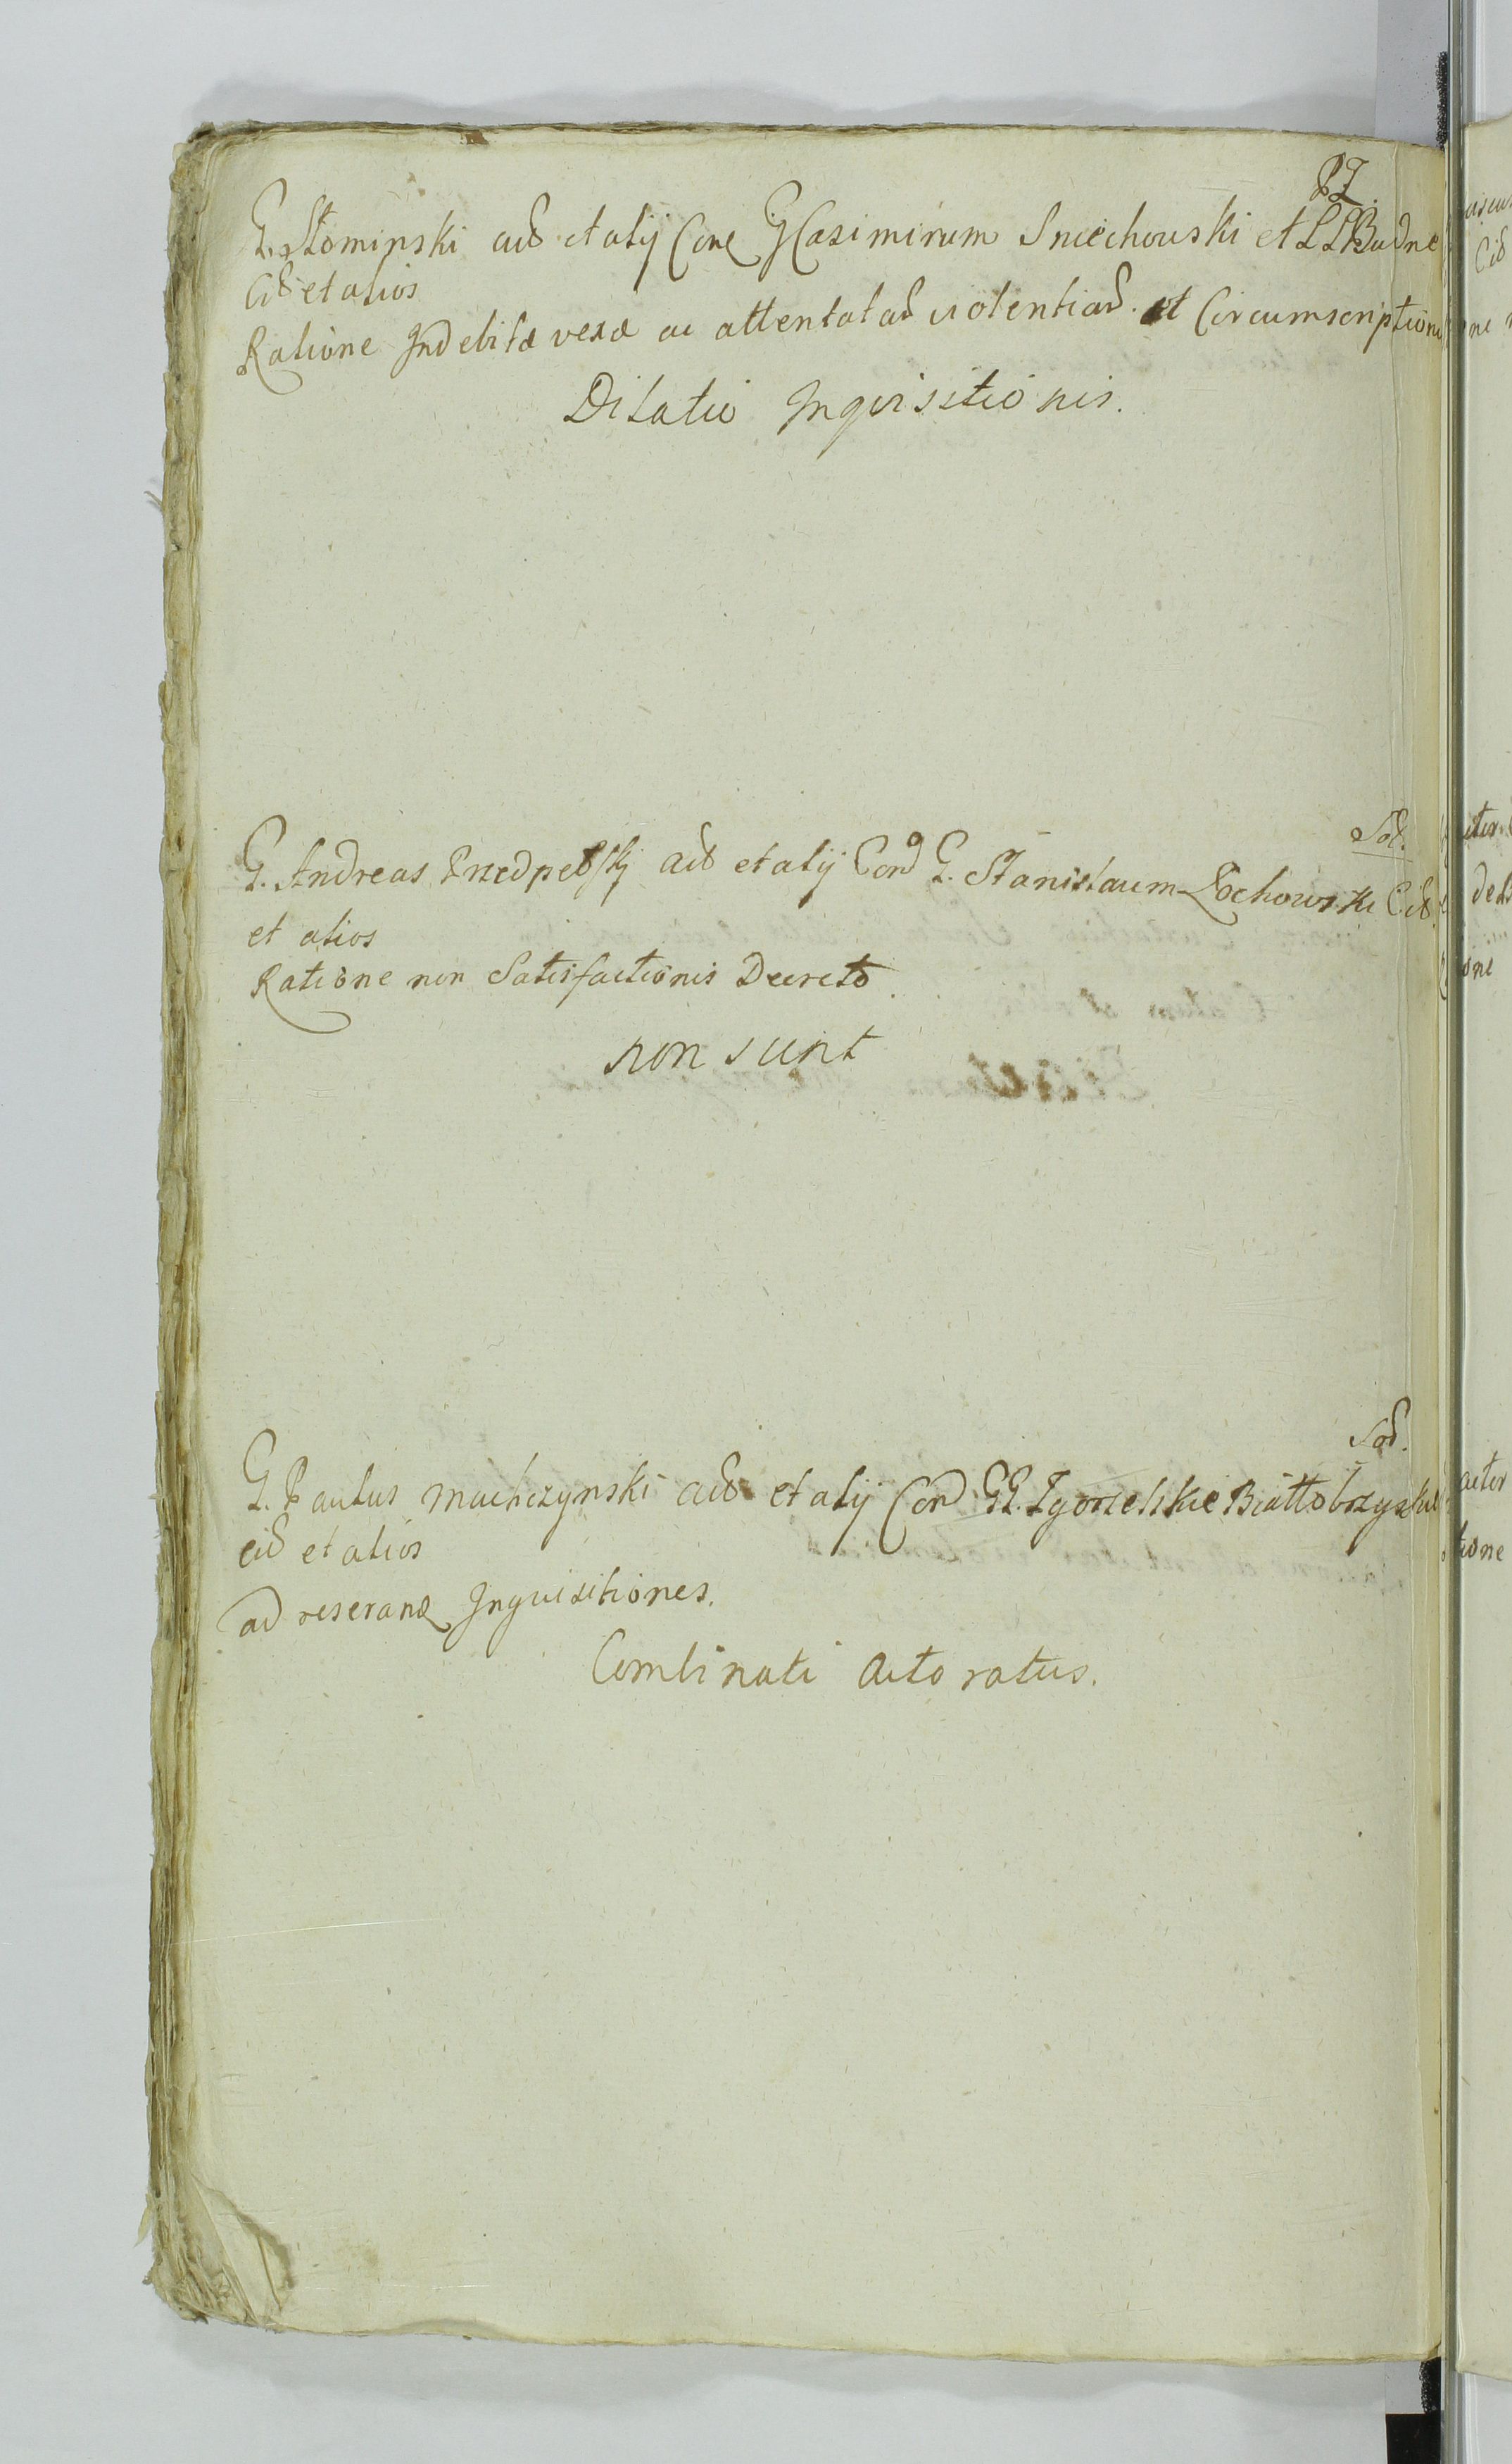 PZ.
G. Słominski acts et alij Cone G Casimirum Sniechowski et LL Budne
Cits et alios
Ratione Indebitæ vexæ ac attentatar violentiar. et Circumscriptione
Dilatio Inquisitionis.
Soch.
G. Andreas Przedpelsky acts et alij Con G. Stanislaum Łochowski Cits
et alios
Ratione non Satisfactionis Decreto.
non sunt
Soch.
G. Paulus Machczynski acts et alij Con GG. Zgorzelskie Białłobrzyskie
cits et alios
ad reseranda Inquisitiones.
Combinati actoratus.